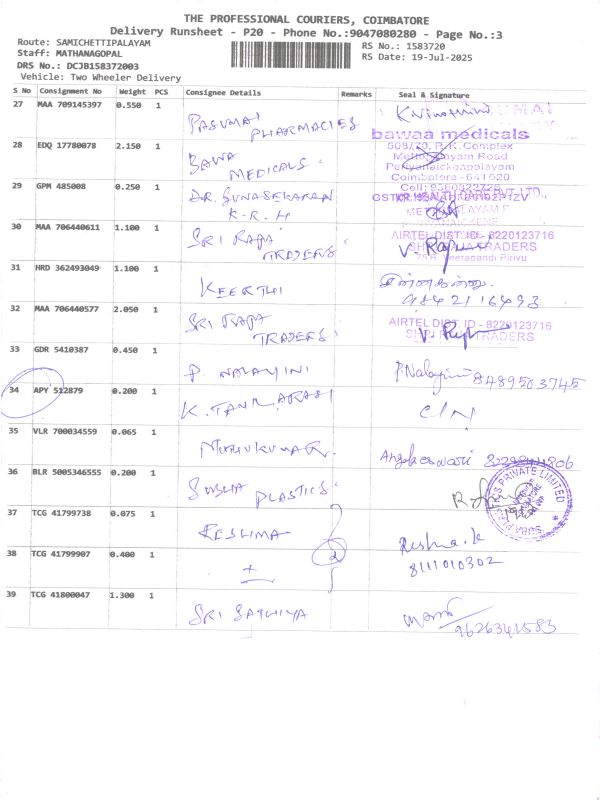 THE PROFESSIONAL COURIERS, COIMBATORE
Delivery Runsheet - P20 - Phone No.:9047080280 - Page No.:3
Route: SAMICHETTIPALAYAM
Staff: MATHANAGOPAL
RS No.: 1583720
DRS No.: DCJB158372003
RS Date: 19-Jul-2025
Vehicle: Two Wheeler Delivery
S No Consignment No Weight PCS Consignee Details Remarks Seal & Signature
27 MAA 709145397 0.550 1 PASUMAI PHARMACIES
bawaa medicals
28 EDQ 17780078 2.150 1 BAWA MEDICALS.
P.K.Complex
Coimbatore - 641 020
29 GPM 485008 0.250 1 DR. GUNASEKARAN
K.R.H
30 MAA 706440611 1.100 1 SRI RAJA TRADERS
AIRTEL DIST. ID - 8220123716
TRADERS
31 HRD 362493049 1.100 1 KEERTHI
32 MAA 706440577 2.050 1 SRI RAJA TRADERS
AIRTEL DIST. ID - 8220123716
TRADERS
33 GDR 5410387 0.450 1 P. NALAYINI P.Nalayini 8489503745
34 APY 512879 0.200 1 K. TAMILARASI
35 VLR 700034559 0.065 1 MUTHUKUMAR
36 BLR 5005346555 0.200 1 SUSHA PLASTICS
PRIVATE LIMITED
37 TCG 41799738 0.075 1 RESHMA Reshma.k
38 TCG 41799907 0.400 1 8111010302
39 TCG 41800047 1.300 1 SRI SATHIYA
9626341583